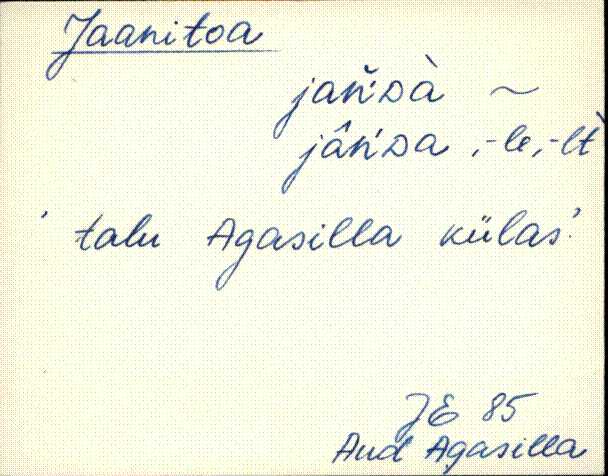 Jaanitoa
jań̆ᴅà ~
jâńᴅa, -le, -lt
' talu Agasilla külas'.
JE 85
Aud Agasilla